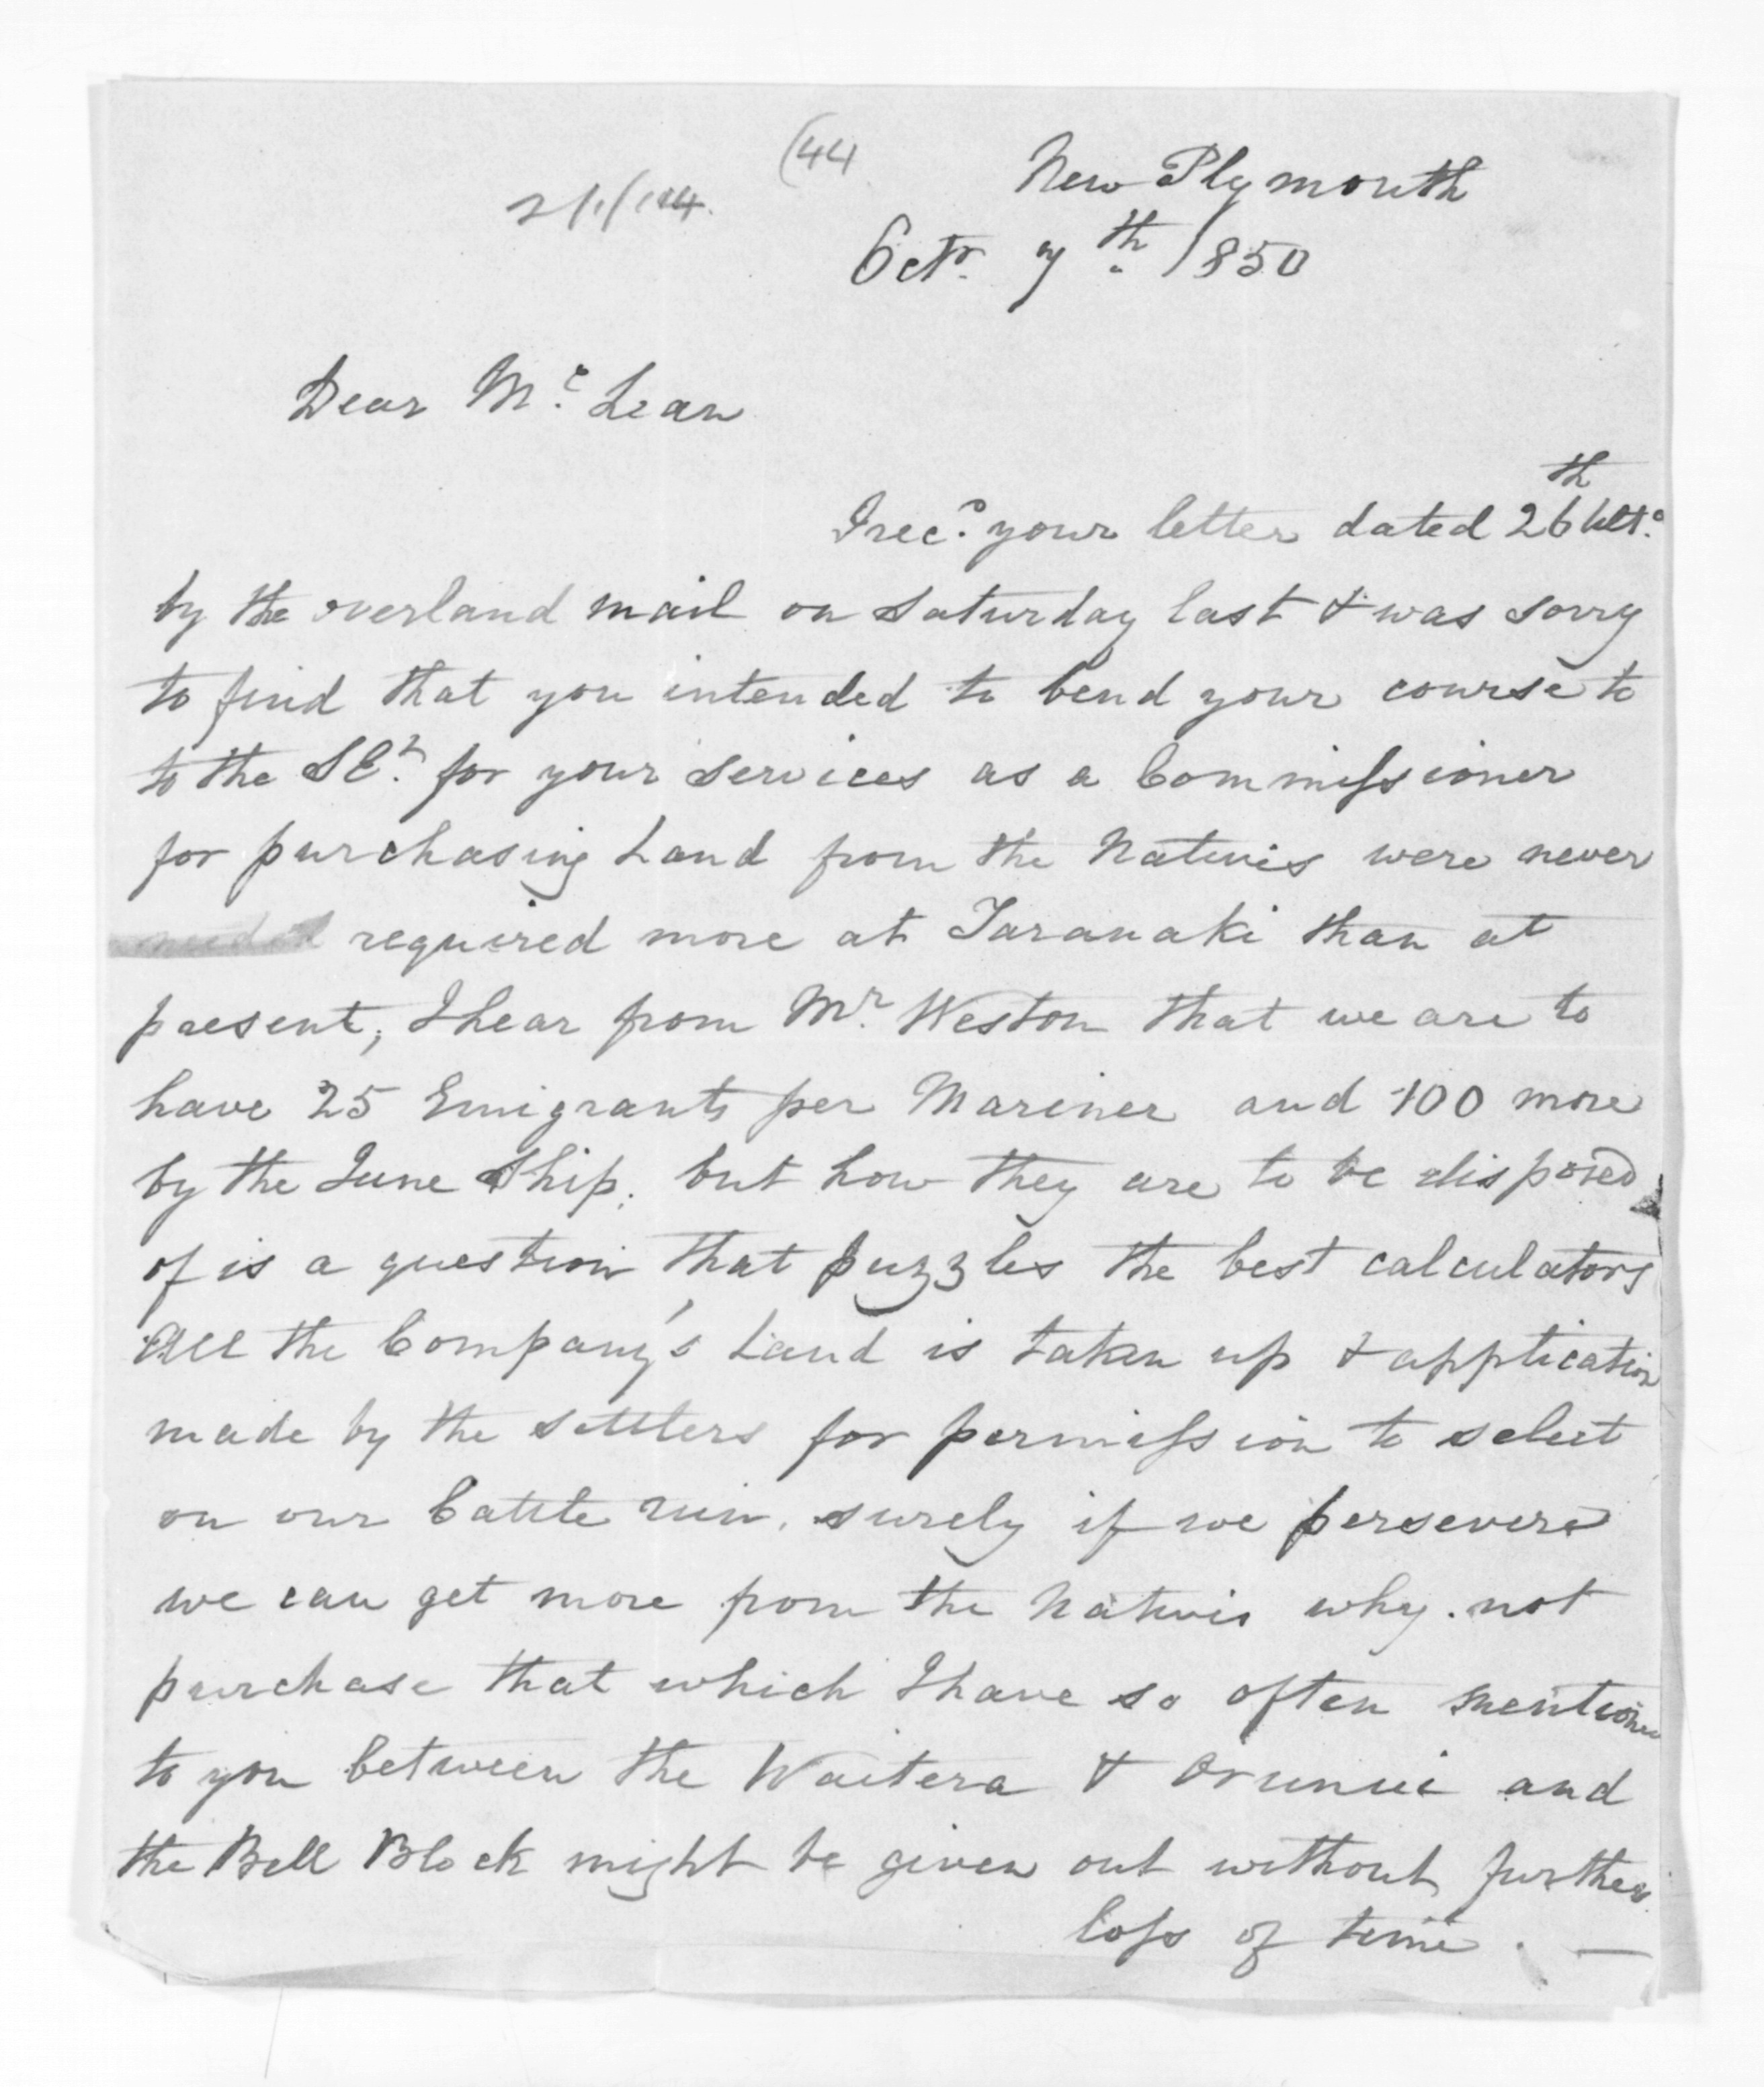 (44
New Plymouth
Octr. 7th. 1850
Dear Mc. Lean
I recd. your letter dated 26th ulto.
by the overland mail on Saturday last & was sorry
to find that you intended to bend your course to
to the SEt. for your services as a Commissioner
for purchasing Land from the Natives were never
required more at Taranaki than at
present, I hear from Mr. Weston that we are to
have 25 Emigrants per Mariner and 100 more
by the June Ship. but how they are to be disposed
of is a question that puzzles the best calculators
All the Company's Land is taken up & application
made by the settlers for permission to select
on our Cattle run. surely if we persevere
we can get more from the Natives why not
purchase that which I have so often mentioned
to you between the Waitera & Orunui and
the Bell Block might be given out without further
loss of time. —